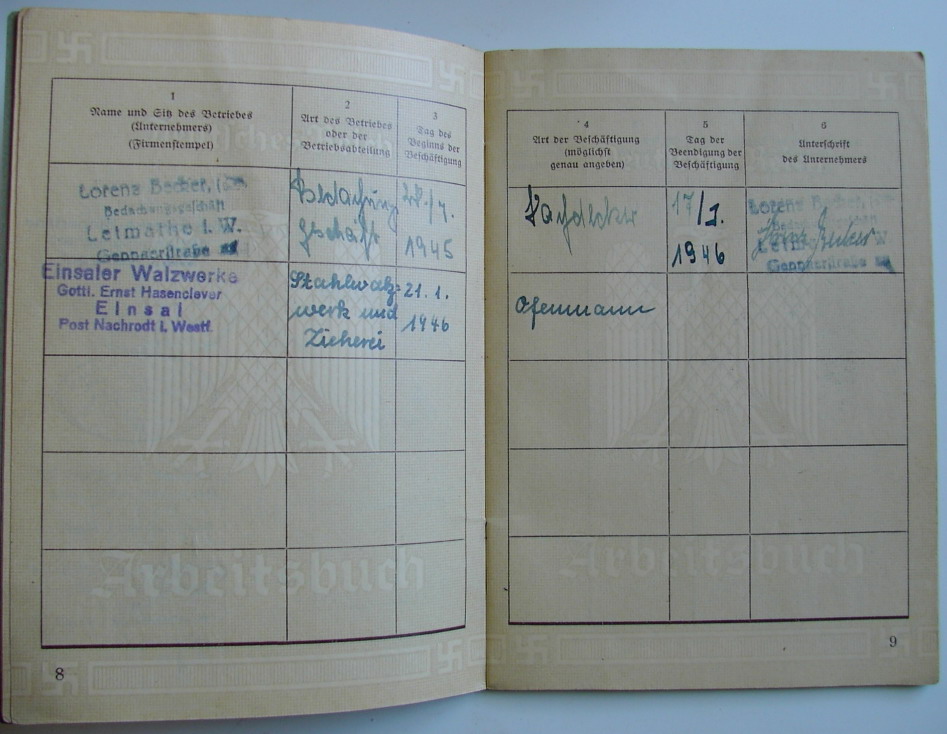 1
Name und Sitz des Betriebes
(Unternehmers)
(Firmenstempel)
2
Art des Betriebes
oder der
Betriebsabteilung
3
Tag des
Beginns der
Beschäftigung
4
Art der Beschäftigung
(möglichst
genau angeben)
5
Tag der
Beendigung der
Beschäftigung
6
Unterschrift
des Unternehmers
Lorenz Becker,
Bedachungsgeschäft
Letmathe i. W.
Gennaerstraße
1945
Dachdecker
17/1.
1946
Lorenz Becker,
Gennaerstraße
Einsaler Walzwerke
Gottl. Ernst Hasenclever
Einsal
Post Nachrodt i. Westf.
Stahlwalz=
werk und
Zieherei
21. 1.
1946
Ofenmann
Arbeitsbuch
Arbeitsbuch
8
9